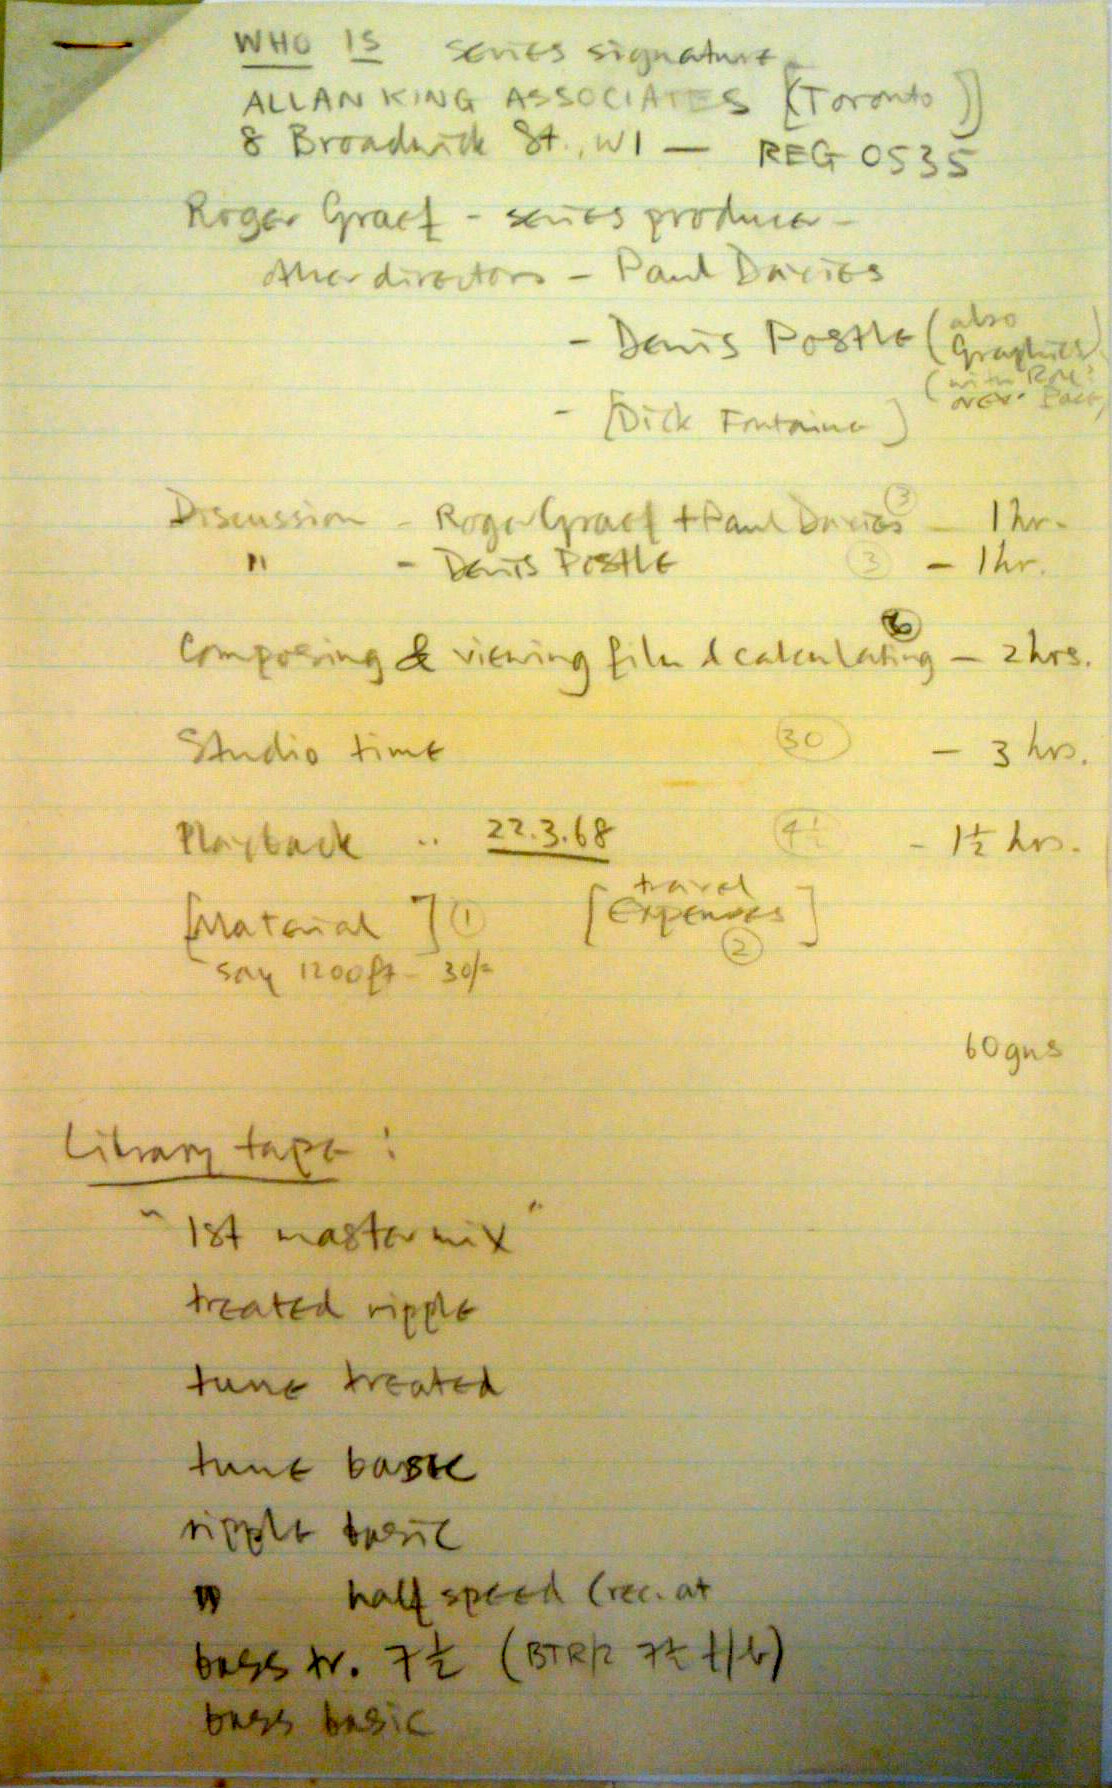 WHO IS series signature
ALLAN KING ASSOCIATES [(Toronto)]
8 Broadwick St., W1 — REG 0535
Roger Graef - series producer -
other directors - Paul Davies
- Denis Postle (also Graphics)
(with
over
- [Dick Fontaine]
Discussion - Roger Graef + Paul Davies ③ - 1 hr.
" - Denis Postle ③ - 1 hr.
Composing & viewing film & calculating ⑥ - 2 hrs.
Studio time ㉚ - 3 hrs.
Playback .. 22.3.68 (4½) - 1½ hrs.
[Material] ① [travel Expenses] ②
say 1200ft - 30/=
60 gns
Library tape:
"1st master mix"
treated ripple
tune treated
tune basic
ripple basic
" half speed (rec. at
bass tr. 7½ (BTR/2 7½ f/b)
bass basic